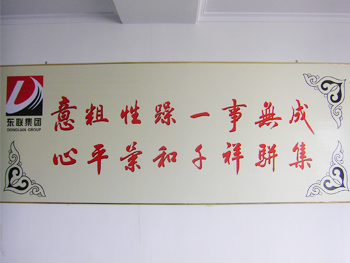 东联集团
DONGLIAN GROUP
意粗性躁一事無成
心平氣和千祥駢集